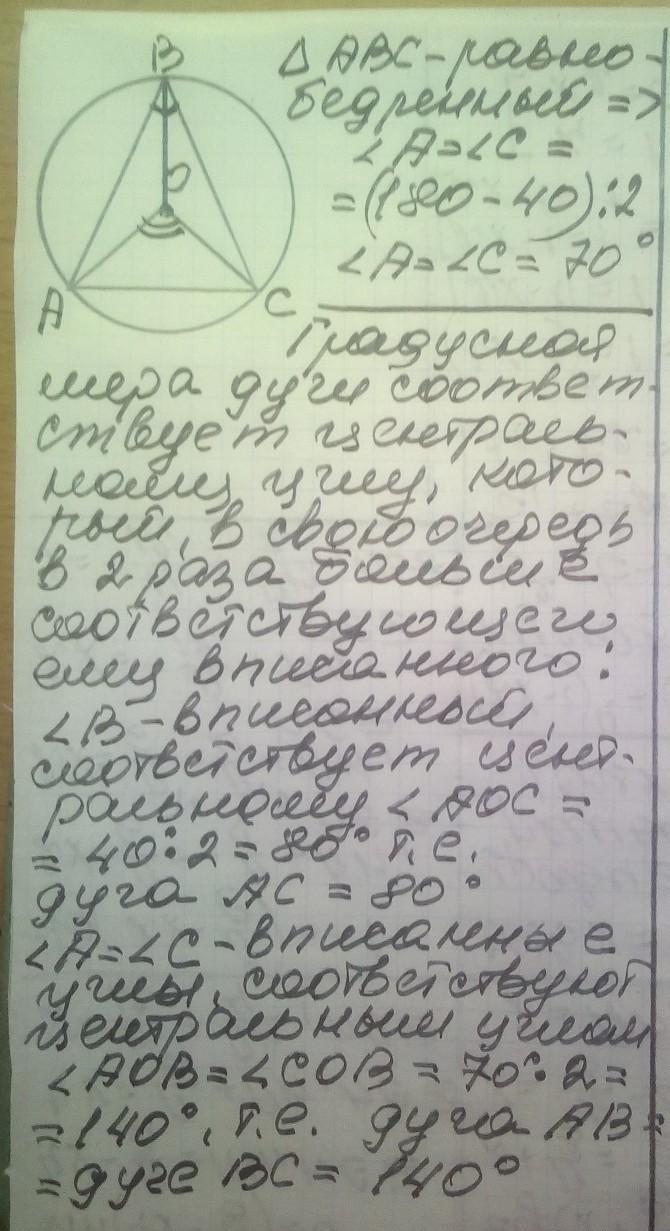 B
O
A
C
△ ABC - равно-
бедренный =>
∠A = ∠C =
= (180 - 40) : 2
∠A = ∠C = 70°
Градусная
мера дуги соответ-
ствует централь-
ному углу, кото-
рый, в свою очередь
в 2 раза больше
соответствующего
ему вписанного:
∠B - вписанный,
соответствует цент-
ральному ∠AOC =
= 40° · 2 = 80° т.е.
дуга AC = 80°
∠A = ∠C - вписанные
углы, соответствуют
центральным углам
∠AOB = ∠COB = 70° · 2 =
= 140°, т.е. дуга AB =
= дуге BC = 140°